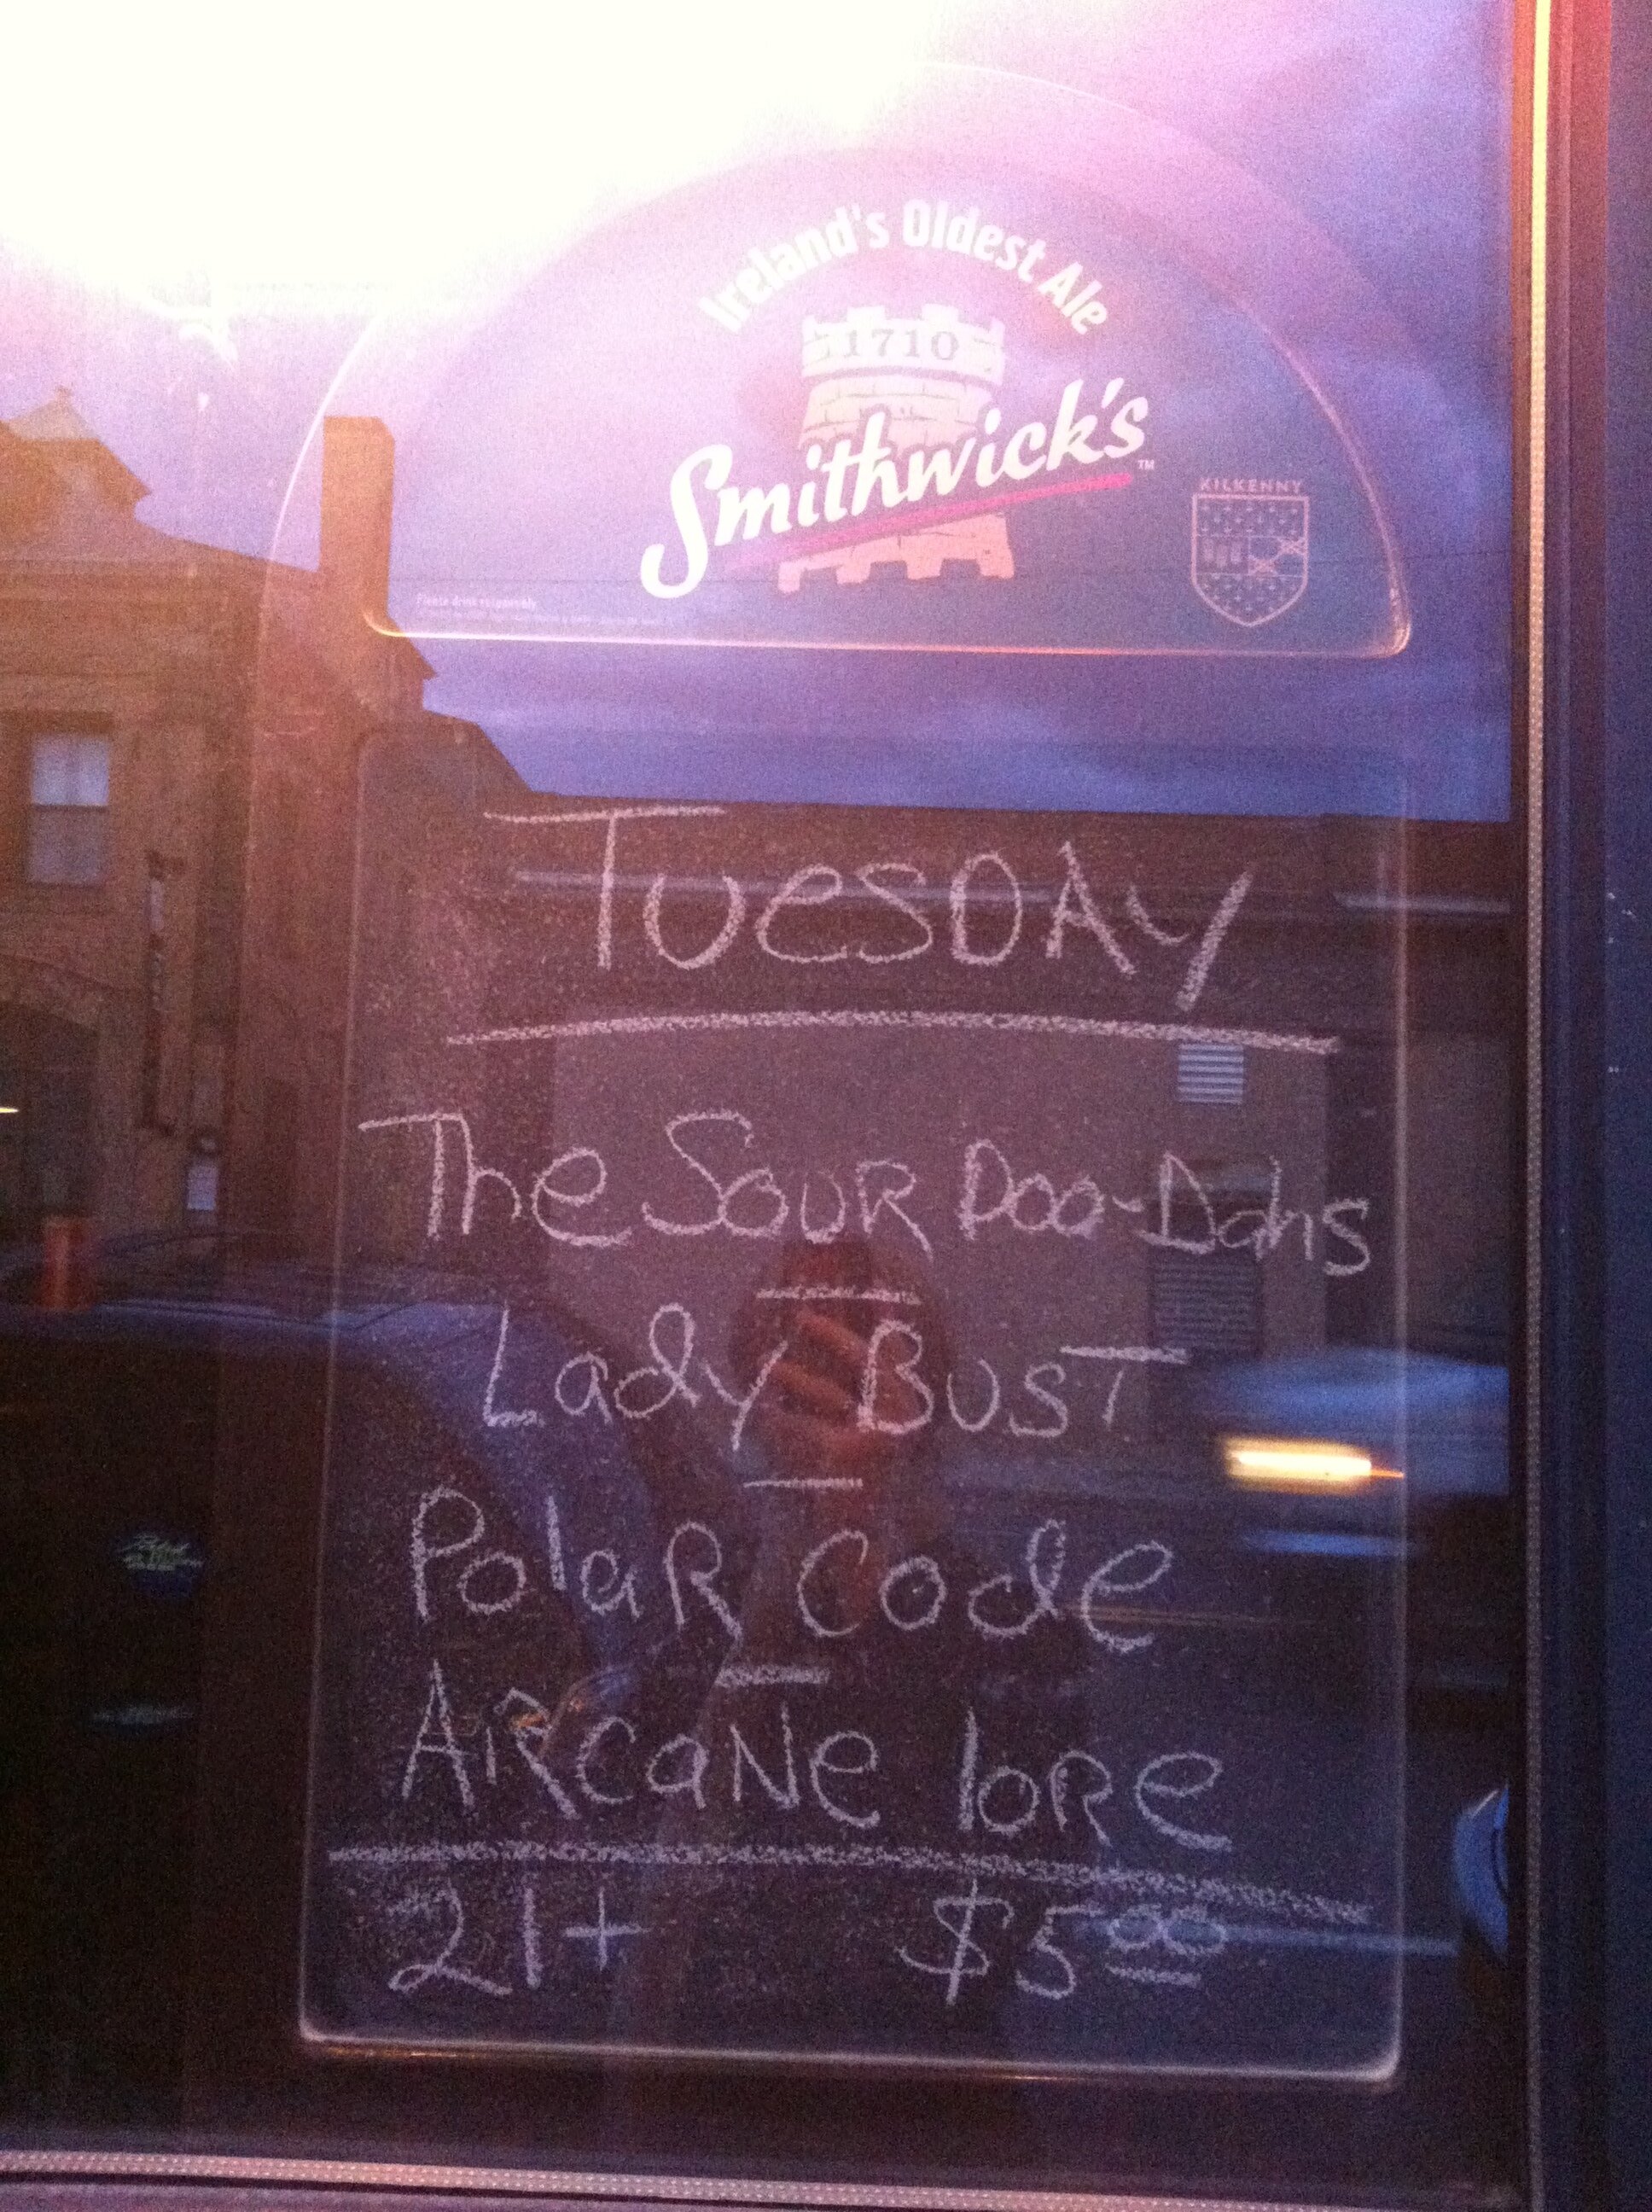 Ireland's Oldest Ale
1710
Smithwick's™
KILKENNY
Please drink responsibly
TuesDAy
The SouR Doo-Dahs
Lady BusT
PolaR Code
ARcaNe loRe
21+ $5.00